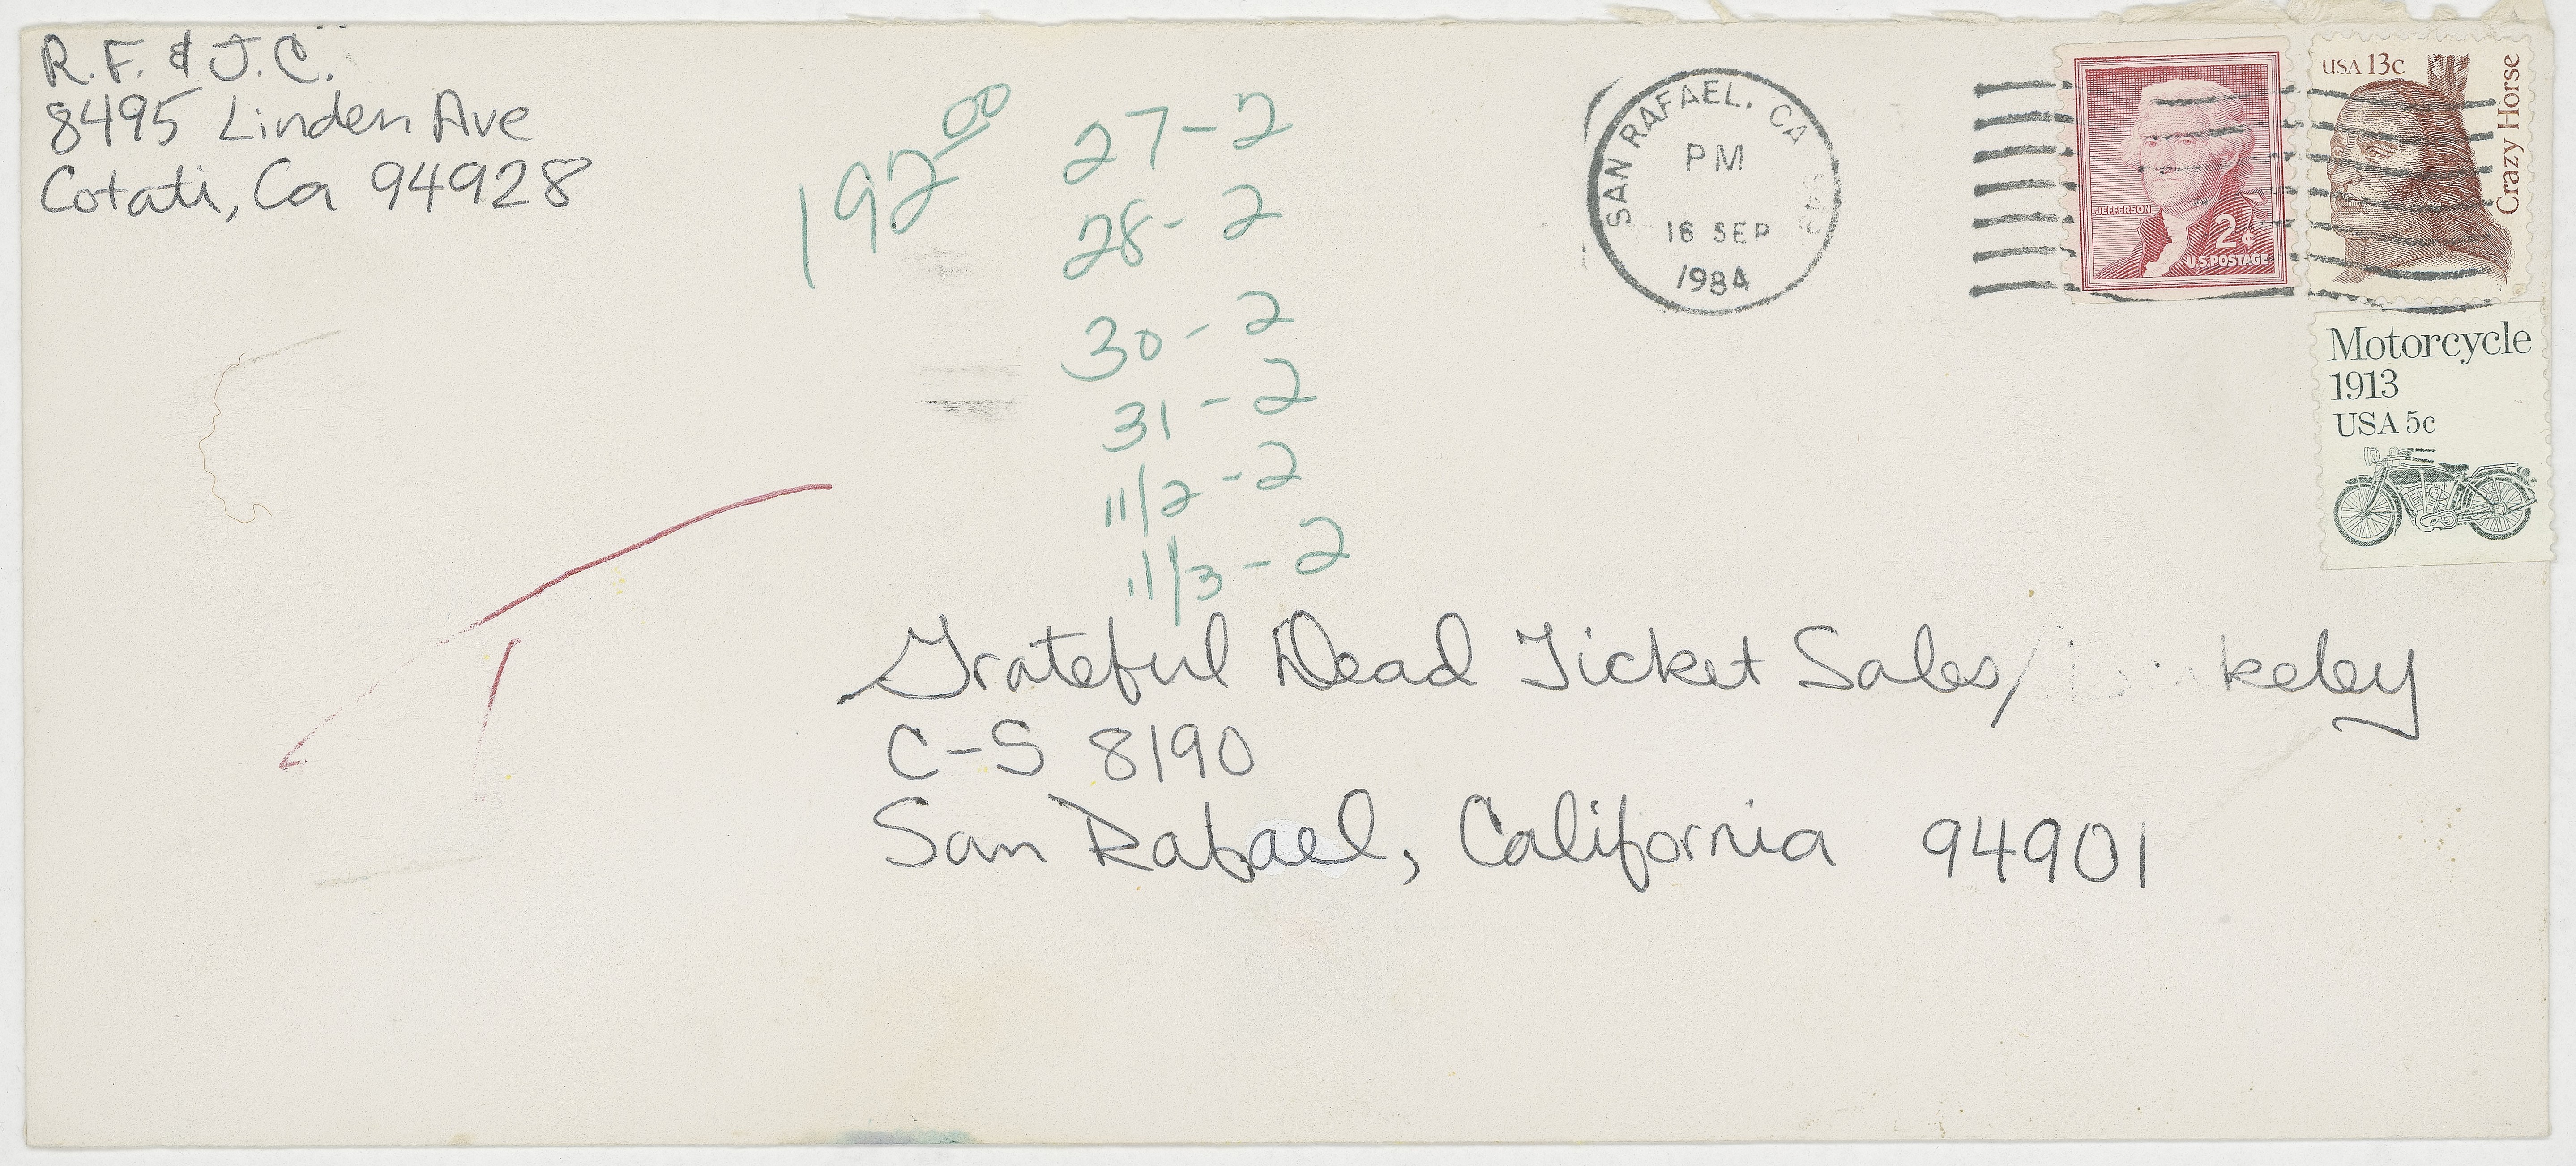 R. F. & J. C.
8495 Linden Ave
Cotati, Ca 94928
192.00
27-2
28-2
30-2
31-2
11/2-2
11/3-2
SAN RAFAEL, CA
PM
16 SEP
1984
JEFFERSON
2¢
U.S. POSTAGE
USA 13c
Crazy Horse
Motorcycle
1913
USA 5c
Grateful Dead Ticket Sales/ keley
C-S 8190
San Rafael, California 94901